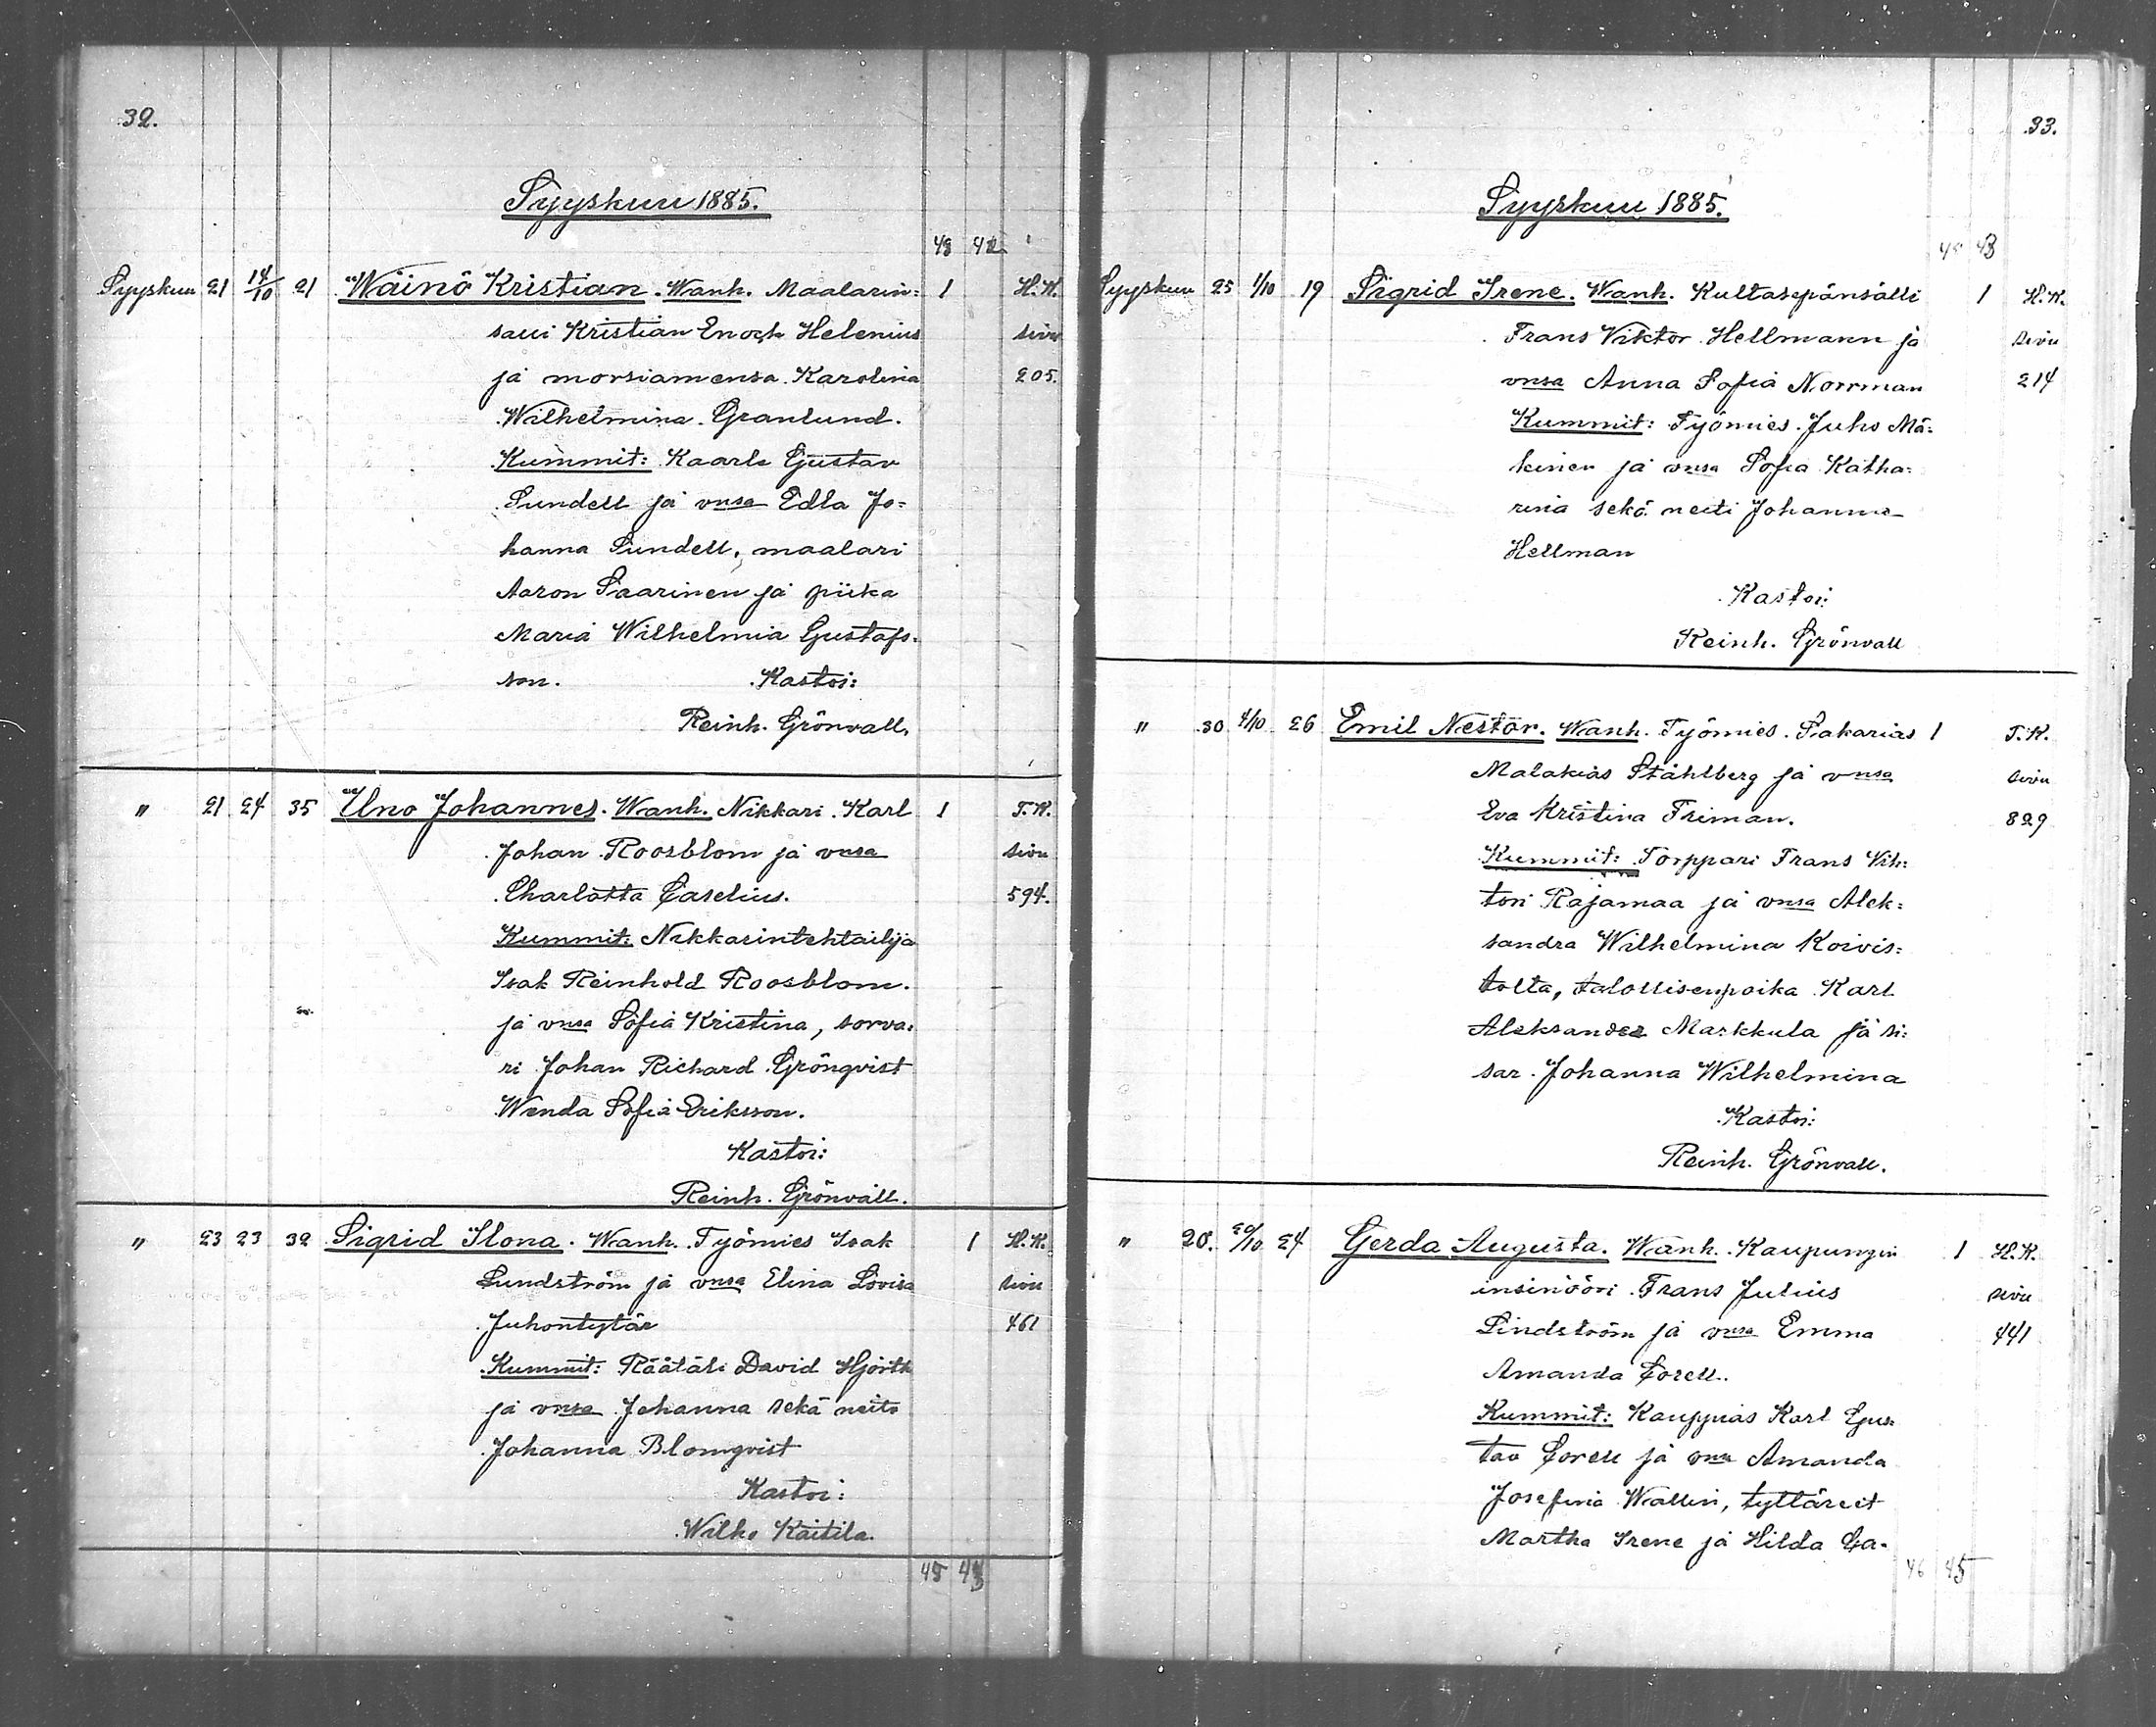 32.
Syyskuu 1885.
43 42
Syyskuu 21 14/10 21 Wäinö Kristian. Wanh. Maalarin= 1 H.K.
salli Kristian Enoch Helenius sivu
ja morsiamensa Karolina 205.
Wilhelmina Granlund.
Kummit: Kaarle Gustav
Sundell ja vnsa Edla Jo=
hanna Sundell, maalari
Aaron Saarinen ja piika
Maria Wilhelmia Gustafs=
son. Kastoi:
Reinh. Grönvall.
" 21 24 35 Uno Johannes. Wanh. Nikkari Karl 1 T.K.
Johan Roosblom ja vnsa sivu
Charlotta Caselius. 594.
Kummit: Nikkarintehtailija
Isak Reinhold Roosblom.
ja vnsa Sofia Kristina, sorva=
ri Johan Richard Grönqvist
Wenda Sofia Eriksson.
Kastoi:
Reinh. Grönvall.
" 23 23 32 Sigrid Ilona. Wanh. Työmies Isak 1 H.K.
Lundström ja vnsa Elina Lovisa sivu
Juhontytär 461
Kummit: Räätäli David Hjorth
ja vnsa Johanna sekä neito
Johanna Blomqvist
Kastoi:
Wilho Kaitila.
45 43
33.
Syyskuu 1885.
45 43
Syyskuu 25 1/10 19 Sigrid Irene. Wanh. Kultasepänsälli 1 H.K.
Frans Viktor Hellmann ja sivu
vnsa Anna Sofia Norrman 214
Kummit: Työmies Juho Mä=
kinen ja vnsa Sofia Katha=
rina sekä neiti Johanna
Hellman
Kastoi:
Reinh. Grönvall
" 30 4/10 26 Emil Nestor. Wanh. Työmies Sakarias 1 T.K.
Malakias Ståhlberg ja vnsa sivu
Eva Kristina Friman. 829
Kummit: Torppari Frans Vih=
tori Rajamaa ja vnsa Alek=
sandra Wilhelmina Koivis=
tolta, talollisenpoika Karl
Aleksander Markkula ja si=
sar Johanna Wilhelmina
Kastoi:
Reinh. Grönvall.
" 20. 20/10 24 Gerda Augusta. Wanh. Kaupungin 1 H.K.
insinööri Frans Julius sivu
Lindström ja vnsa Emma 441
Amanda Corell.
Kummit: Kauppias Karl Gus=
tav Corell ja vnsa Amanda
Josefina Wallin, tyttäret
Martha Irene ja Hilda Ga=
46 45